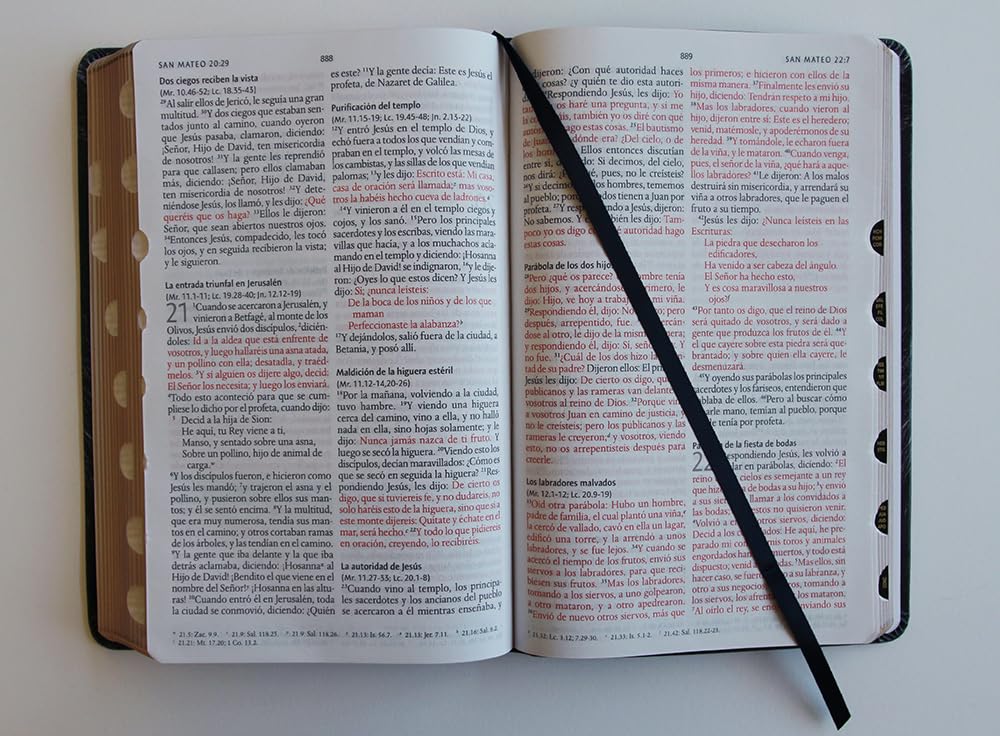 SAN MATEO 20:29
888
Dos ciegos reciben la vista
(Mr. 10.46-52; Lc. 18.35-43)
29Al salir ellos de Jericó, le seguía una gran
multitud. 30Y dos ciegos que estaban sen-
tados junto al camino, cuando oyeron
que Jesús pasaba, clamaron, diciendo:
¡Señor, Hijo de David, ten misericordia
de nosotros! 31Y la gente les reprendió
para que callasen; pero ellos clamaban
más, diciendo: ¡Señor, Hijo de David,
ten misericordia de nosotros! 32Y dete-
niéndose Jesús, los llamó, y les dijo: ¿Qué
queréis que os haga? 33Ellos le dijeron:
Señor, que sean abiertos nuestros ojos.
34Entonces Jesús, compadecido, les tocó
los ojos, y en seguida recibieron la vista;
y le siguieron.
La entrada triunfal en Jerusalén
(Mr. 11.1-11; Lc. 19.28-40; Jn. 12.12-19)
21 1Cuando se acercaron a Jerusalén, y
vinieron a Betfagé, al monte de los
Olivos, Jesús envió dos discípulos, 2dicién-
doles: Id a la aldea que está enfrente de
vosotros, y luego hallaréis una asna atada,
y un pollino con ella; desatadla, y traéd-
melos. 3Y si alguien os dijere algo, decid:
El Señor los necesita; y luego los enviará.
4Todo esto aconteció para que se cum-
pliese lo dicho por el profeta, cuando dijo:
5 Decid a la hija de Sion:
He aquí, tu Rey viene a ti,
Manso, y sentado sobre una asna,
Sobre un pollino, hijo de animal de
carga.
6Y los discípulos fueron, e hicieron como
Jesús les mandó; 7y trajeron el asna y el
pollino, y pusieron sobre ellos sus man-
tos; y él se sentó encima. 8Y la multitud,
que era muy numerosa, tendía sus man-
tos en el camino; y otros cortaban ramas
de los árboles, y las tendían en el camino.
9Y la gente que iba delante y la que iba
detrás aclamaba, diciendo: ¡Hosanna al
Hijo de David! ¡Bendito el que viene en el
nombre del Señor! ¡Hosanna en las altu-
ras! 10Cuando entró él en Jerusalén, toda
la ciudad se conmovió, diciendo: ¿Quién
es este? 11Y la gente decía: Este es Jesús el
profeta, de Nazaret de Galilea.
Purificación del templo
(Mr. 11.15-19; Lc. 19.45-48; Jn. 2.13-22)
12Y entró Jesús en el templo de Dios, y
echó fuera a todos los que vendían y com-
praban en el templo, y volcó las mesas de
los cambistas, y las sillas de los que vendían
palomas; 13y les dijo: Escrito está: Mi casa,
casa de oración será llamada; mas voso-
tros la habéis hecho cueva de ladrones.
14Y vinieron a él en el templo ciegos y
cojos, y los sanó. 15Pero los principales
sacerdotes y los escribas, viendo las mara-
villas que hacía, y a los muchachos acla-
mando en el templo y diciendo: ¡Hosanna
al Hijo de David! se indignaron, 16y le dije-
ron: ¿Oyes lo que estos dicen? Y Jesús les
dijo: Sí; ¿nunca leísteis:
De la boca de los niños y de los que
maman
Perfeccionaste la alabanza?
17Y dejándolos, salió fuera de la ciudad, a
Betania, y posó allí.
Maldición de la higuera estéril
(Mr. 11.12-14,20-26)
18Por la mañana, volviendo a la ciudad,
tuvo hambre. 19Y viendo una higuera
cerca del camino, vino a ella, y no halló
nada en ella, sino hojas solamente; y le
dijo: Nunca jamás nazca de ti fruto. Y
luego se secó la higuera. 20Viendo esto los
discípulos, decían maravillados: ¿Cómo es
que se secó en seguida la higuera? 21Res-
pondiendo Jesús, les dijo: De cierto os
digo, que si tuviereis fe, y no dudareis, no
solo haréis esto de la higuera, sino que si a
este monte dijereis: Quítate y échate en el
mar, será hecho. 22Y todo lo que pidiereis
en oración, creyendo, lo recibiréis.
La autoridad de Jesús
(Mr. 11.27-33; Lc. 20.1-8)
23Cuando vino al templo, los principa-
les sacerdotes y los ancianos del pueblo
se acercaron a él mientras enseñaba, y
21.5: Zac. 9.9. 21.9: Sal. 118.25. 21.9: Sal. 118.26. 21.13: Is. 56.7. 21.13: Jer. 7.11. 21.16: Sal. 8.2.
21.21: Mt. 17.20; 1 Co. 13.2.
889
SAN MATEO 22:7
dijeron: ¿Con qué autoridad haces
cosas? ¿y quién te dio esta autori-
Respondiendo Jesús, les dijo: Yo
os haré una pregunta, y si me
táis, también yo os diré con qué
ago estas cosas. 25El bautismo
de Juan, dónde era? ¿Del cielo, o de
los hom Ellos entonces discutían
entre sí, do: Si decimos, del cielo,
nos dirá: qué, pues, no le creísteis?
26Y si decimos, los hombres, tememos
al pueblo; por dos tienen a Juan por
profeta. 27Y respondiendo a Jesús, dijeron:
No sabemos. Y él también les dijo: Tam-
poco yo os digo con qué autoridad hago
estas cosas.
Parábola de los dos hijos
28Pero ¿qué os parece? Un hombre tenía
dos hijos, y acercándose al primero, le
dijo: Hijo, ve hoy a trabajar en mi viña.
29Respondiendo él, dijo: No quiero; pero
después, arrepentido, fue. 30Y acercán-
dose al otro, le dijo de la misma manera;
y respondiendo él, dijo: Sí, señor, voy. Y
no fue. 31¿Cuál de los dos hizo la volun-
tad de su padre? Dijeron ellos: El primero.
Jesús les dijo: De cierto os digo, que los
publicanos y las rameras van delante de
vosotros al reino de Dios. 32Porque vino
a vosotros Juan en camino de justicia, y
no le creísteis; pero los publicanos y las
rameras le creyeron; y vosotros, viendo
esto, no os arrepentisteis después para
creerle.
Los labradores malvados
(Mr. 12.1-12; Lc. 20.9-19)
33Oíd otra parábola: Hubo un hombre,
padre de familia, el cual plantó una viña,
la cercó de vallado, cavó en ella un lagar,
edificó una torre, y la arrendó a unos
labradores, y se fue lejos. 34Y cuando se
acercó el tiempo de los frutos, envió sus
siervos a los labradores, para que reci-
biesen sus frutos. 35Mas los labradores,
tomando a los siervos, a uno golpearon,
a otro mataron, y a otro apedrearon.
36Envió de nuevo otros siervos, más que
los primeros; e hicieron con ellos de la
misma manera. 37Finalmente les envió su
hijo, diciendo: Tendrán respeto a mi hijo.
38Mas los labradores, cuando vieron al
hijo, dijeron entre sí: Este es el heredero;
venid, matémosle, y apoderémonos de su
heredad. 39Y tomándole, le echaron fuera
de la viña, y le mataron. 40Cuando venga,
pues, el señor de la viña, ¿qué hará a aque-
llos labradores? 41Le dijeron: A los malos
destruirá sin misericordia, y arrendará su
viña a otros labradores, que le paguen el
fruto a su tiempo.
42Jesús les dijo: ¿Nunca leísteis en las
Escrituras:
La piedra que desecharon los
edificadores,
Ha venido a ser cabeza del ángulo.
El Señor ha hecho esto,
Y es cosa maravillosa a nuestros
ojos?
43Por tanto os digo, que el reino de Dios
será quitado de vosotros, y será dado a
gente que produzca los frutos de él. 44Y
el que cayere sobre esta piedra será que-
brantado; y sobre quien ella cayere, le
desmenuzará.
45Y oyendo sus parábolas los principales
sacerdotes y los fariseos, entendieron que
hablaba de ellos. 46Pero al buscar cómo
arle mano, temían al pueblo, porque
e tenía por profeta.
Pa de la fiesta de bodas
22 espondiendo Jesús, les volvió a
lar en parábolas, diciendo: 2El
reino cielos es semejante a un rey
que hizo de bodas a su hijo; 3y envió
a sus sie llamar a los convidados a
las bodas; estos no quisieron venir.
4Volvió a otros siervos, diciendo:
Decid a los dos: He aquí, he pre-
parado mi co mis toros y animales
engordados ha muertos, y todo está
dispuesto; venid a das. 5Mas ellos, sin
hacer caso, se fuero o a su labranza, y
otro a sus negocios; tros, tomando a
los siervos, los afrent los mataron.
7Al oírlo el rey, se enojó; enviando sus
21.32: Lc. 3.12; 7.29-30. 21.33: Is. 5.1-2. 21.42: Sal. 118.22-23.